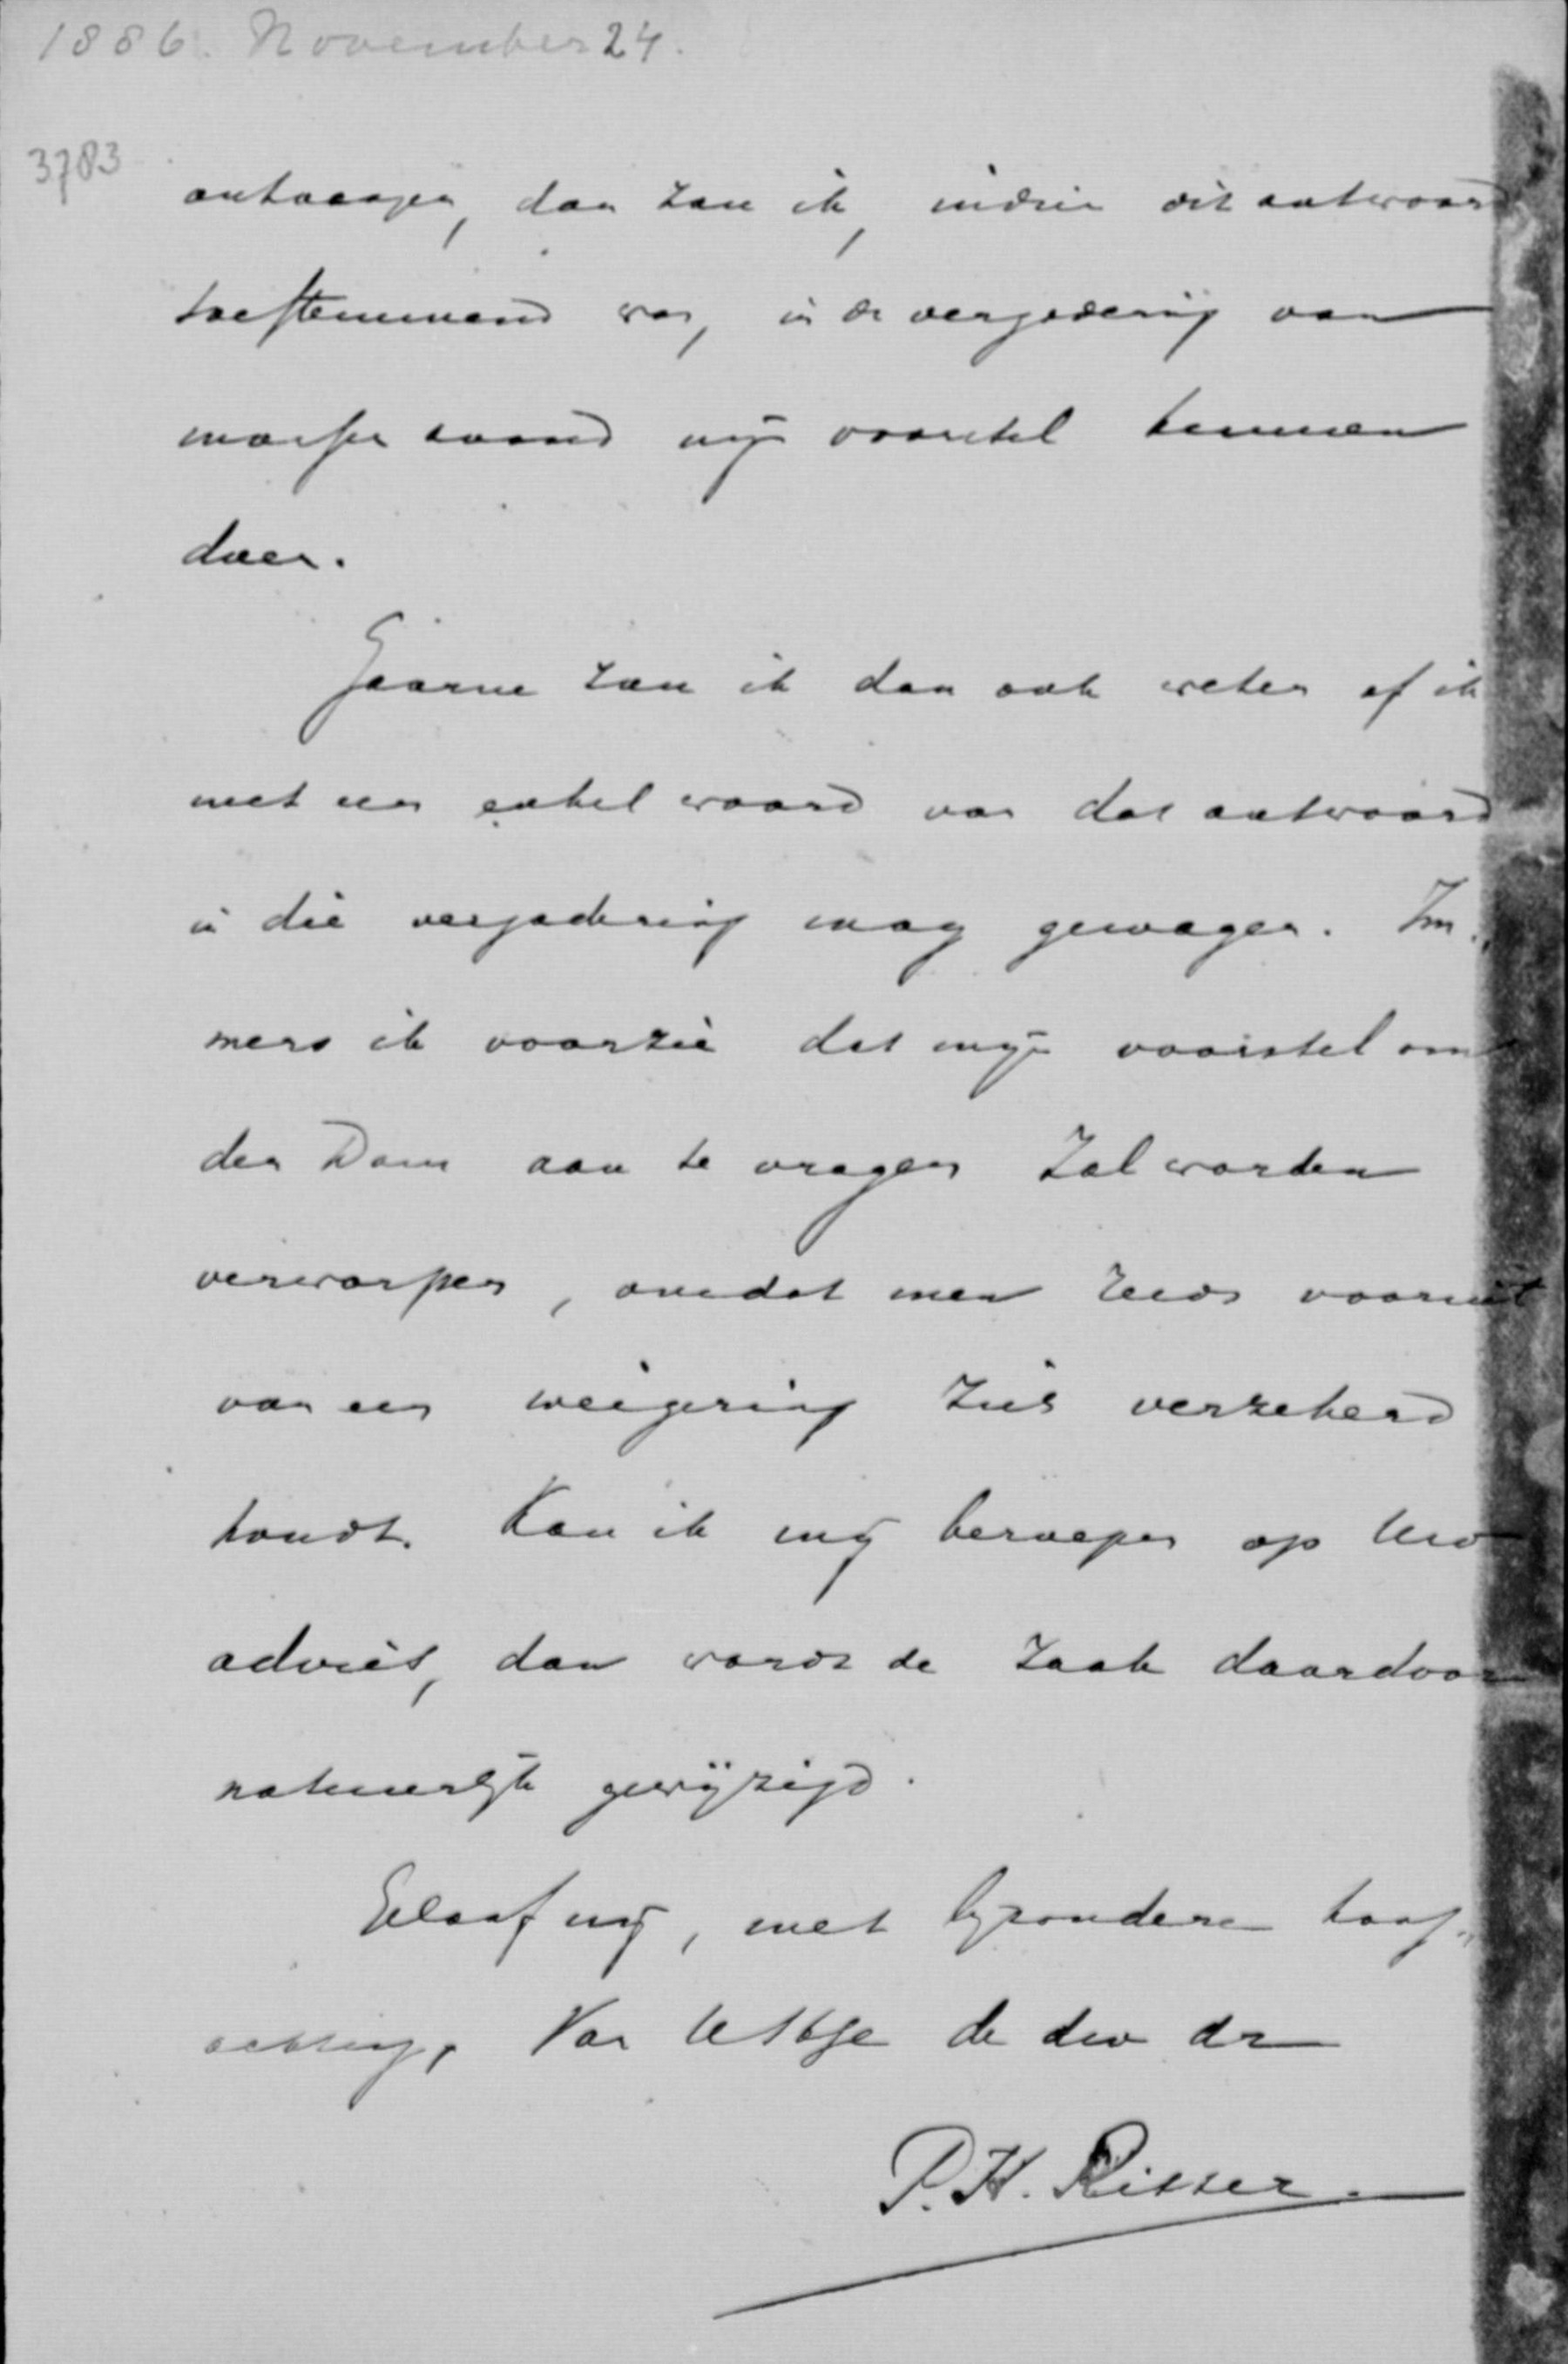 1886. November 24.
3783
ontvangen, dan zou ik, indien dit antwoord
toestemmend was, in de vergadering van
morgen avond mijn voorstel kunnen
doen.
Gaarne zou ik dan ook weten of ik
met een enkel woord van dat antwoord
in die vergadering mag gewagen. Im„
mers ik voorzie dat mijn voorstel om
den Dom aan te vragen zal worden
verworpen, omdat men reeds vooruit
van een weigering zich verzekerd
houdt. Kan ik mij beroepen op Uw
advies, dan wordt de zaak daardoor
natuurlijk gewijzigd.
Geloof mij, met bijzondere hoog„
achting, Van UEdGe de dw dr
P. H. Ritter.